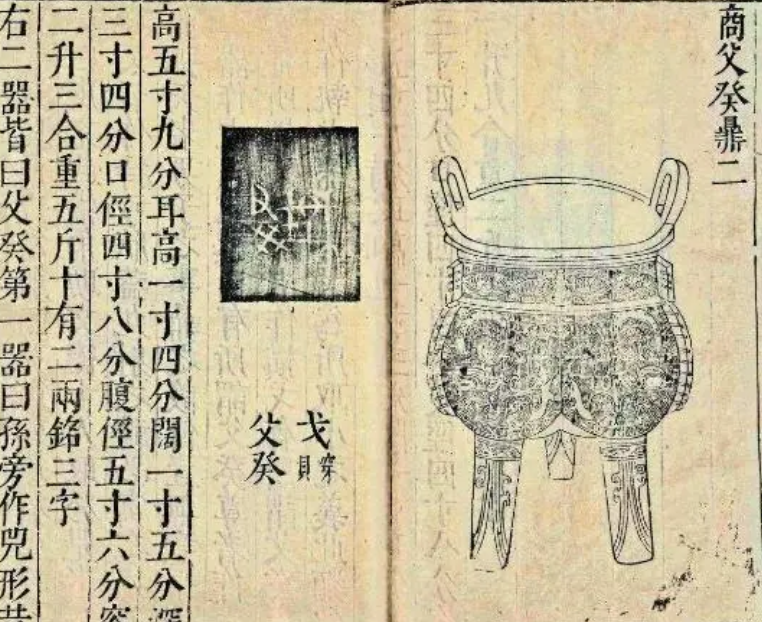 商父癸鼎二
戈
穿貝
父癸
高五寸九分耳高一寸四分闊一寸五分深
三寸四分口俓四寸八分腹俓五寸六分容
二升三合重五斤十有二兩銘三字
右二器皆曰父癸第一器曰孫旁作兕形